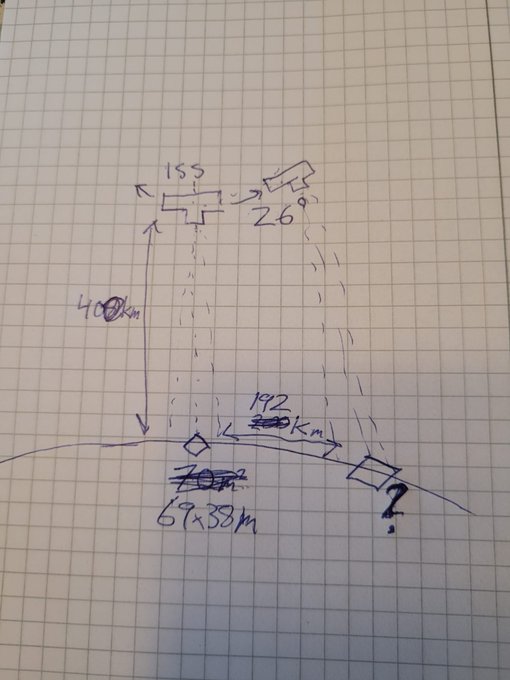 ISS
26°
400km
192
Km
69x38m
?